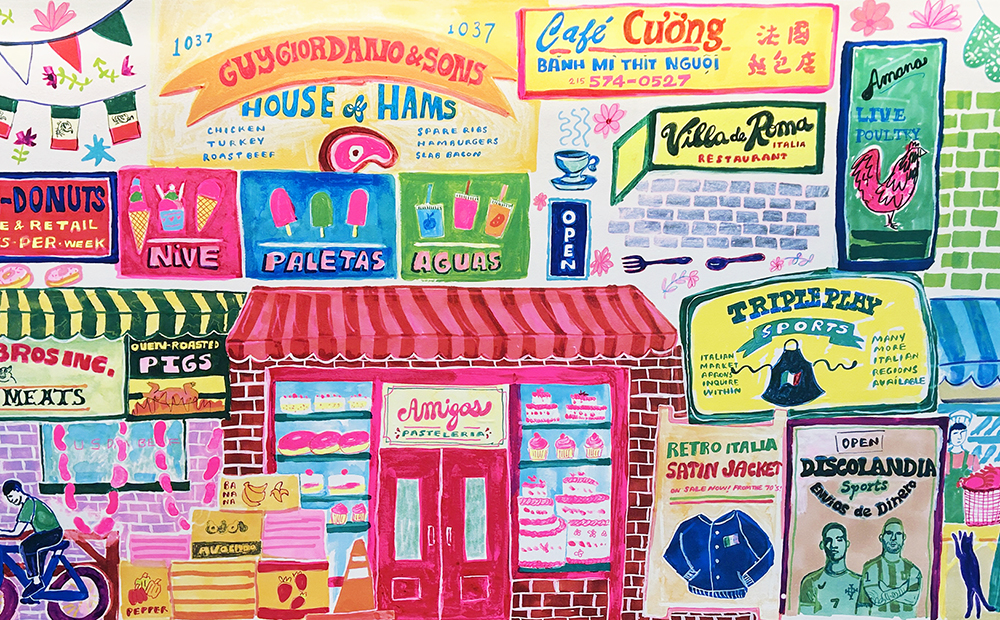 1037
1037
GUY GIORDANO & SONS
HOUSE of HAMS
CHICKEN
TURKEY
ROAST BEEF
SPARE RIBS
HAMBURGERS
SLAB BACON
Café Cường
BÁNH MÌ THỊT NGUỘI
215 574-0527
法國
麵包店
Amana
LIVE
POULTRY
Villa de Roma
ITALIA
RESTAURANT
OPEN
-DONUTS
E & RETAIL
S-PER-WEEK
NIVE
PALETAS
AGUAS
BROS INC.
MEATS
OVEN-ROASTED
PIGS
U.S.D.A. BEEF
Amigos
PASTELERIA
TRIPLE PLAY
SPORTS
ITALIAN
MARKET
APRONS
INQUIRE
WITHIN
MANY
MORE
ITALIAN
REGIONS
AVAILABLE
RETRO ITALIA
SATIN JACKET
ON SALE NOW! FROM THE 70'S!
OPEN
DISCOLANDIA
Sports
ENVIOS de DINERO
7
BA
NA
NA
AVOCADO
PEPPER